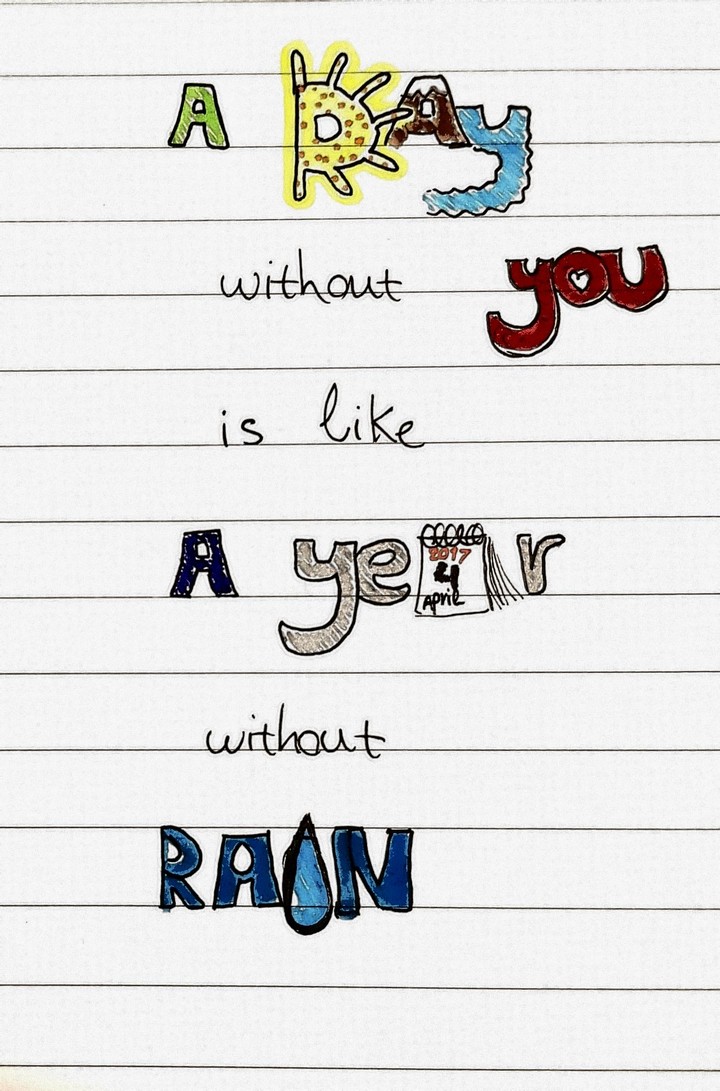 A DAY
without you
is like
A year
2017
4
April
without
RAIN